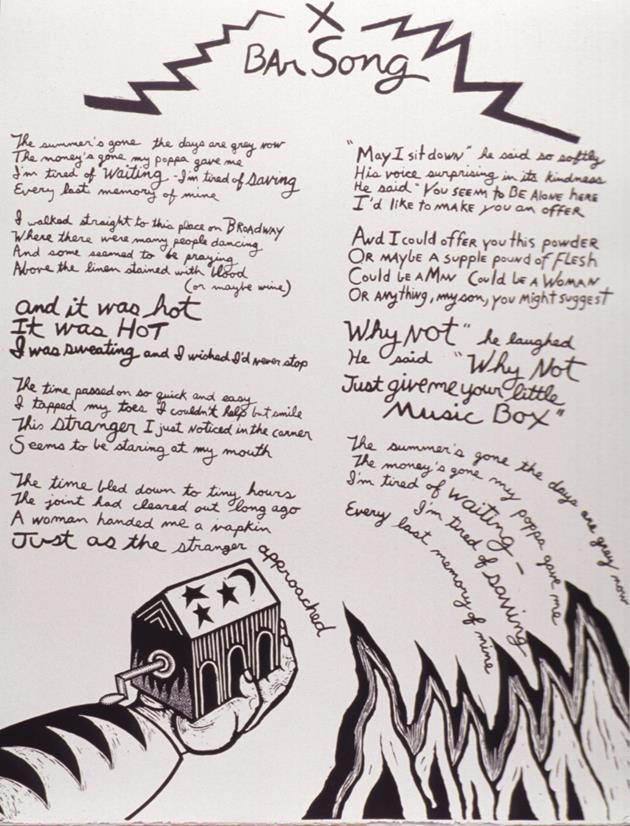 X
BAr Song
The summer's gone the days are grey now
The money's gone my poppa gave me
I'm tired of waiting - I'm tired of saving
Every last memory of mine
I walked straight to this place on BROADWAY
Where there were many people dancing
And some seemed to be praying
Above the linen stained with blood
(or maybe wine)
and it was hot
It was HOT
I was sweating and I wished I'd never stop
The time passed on so quick and easy
I tapped my toes I couldn't help but smile
This stranger I just noticed in the corner
Seems to be staring at my mouth
The time bled down to tiny hours
The joint had cleared out long ago
A woman handed me a napkin
Just as the stranger approached
"May I sit down" he said so softly
His voice surprising in its kindness
He said "YOU SEEM TO BE ALONE HERE
I'd LIKE TO MAKE YOU AN OFFER
And I could offer you this powder
OR MAYBE A SUPPLE POUND OF FLESH
COULD BE A MAN COULD BE A WOMAN
OR ANYthing, my son, you might suggest
Why Not" he laughed
He said "Why Not
Just give me your little
Music Box"
The summer's gone the days are grey now
The money's gone my poppa gave me
I'm tired of waiting -
I'm tired of saving
Every last memory of mine